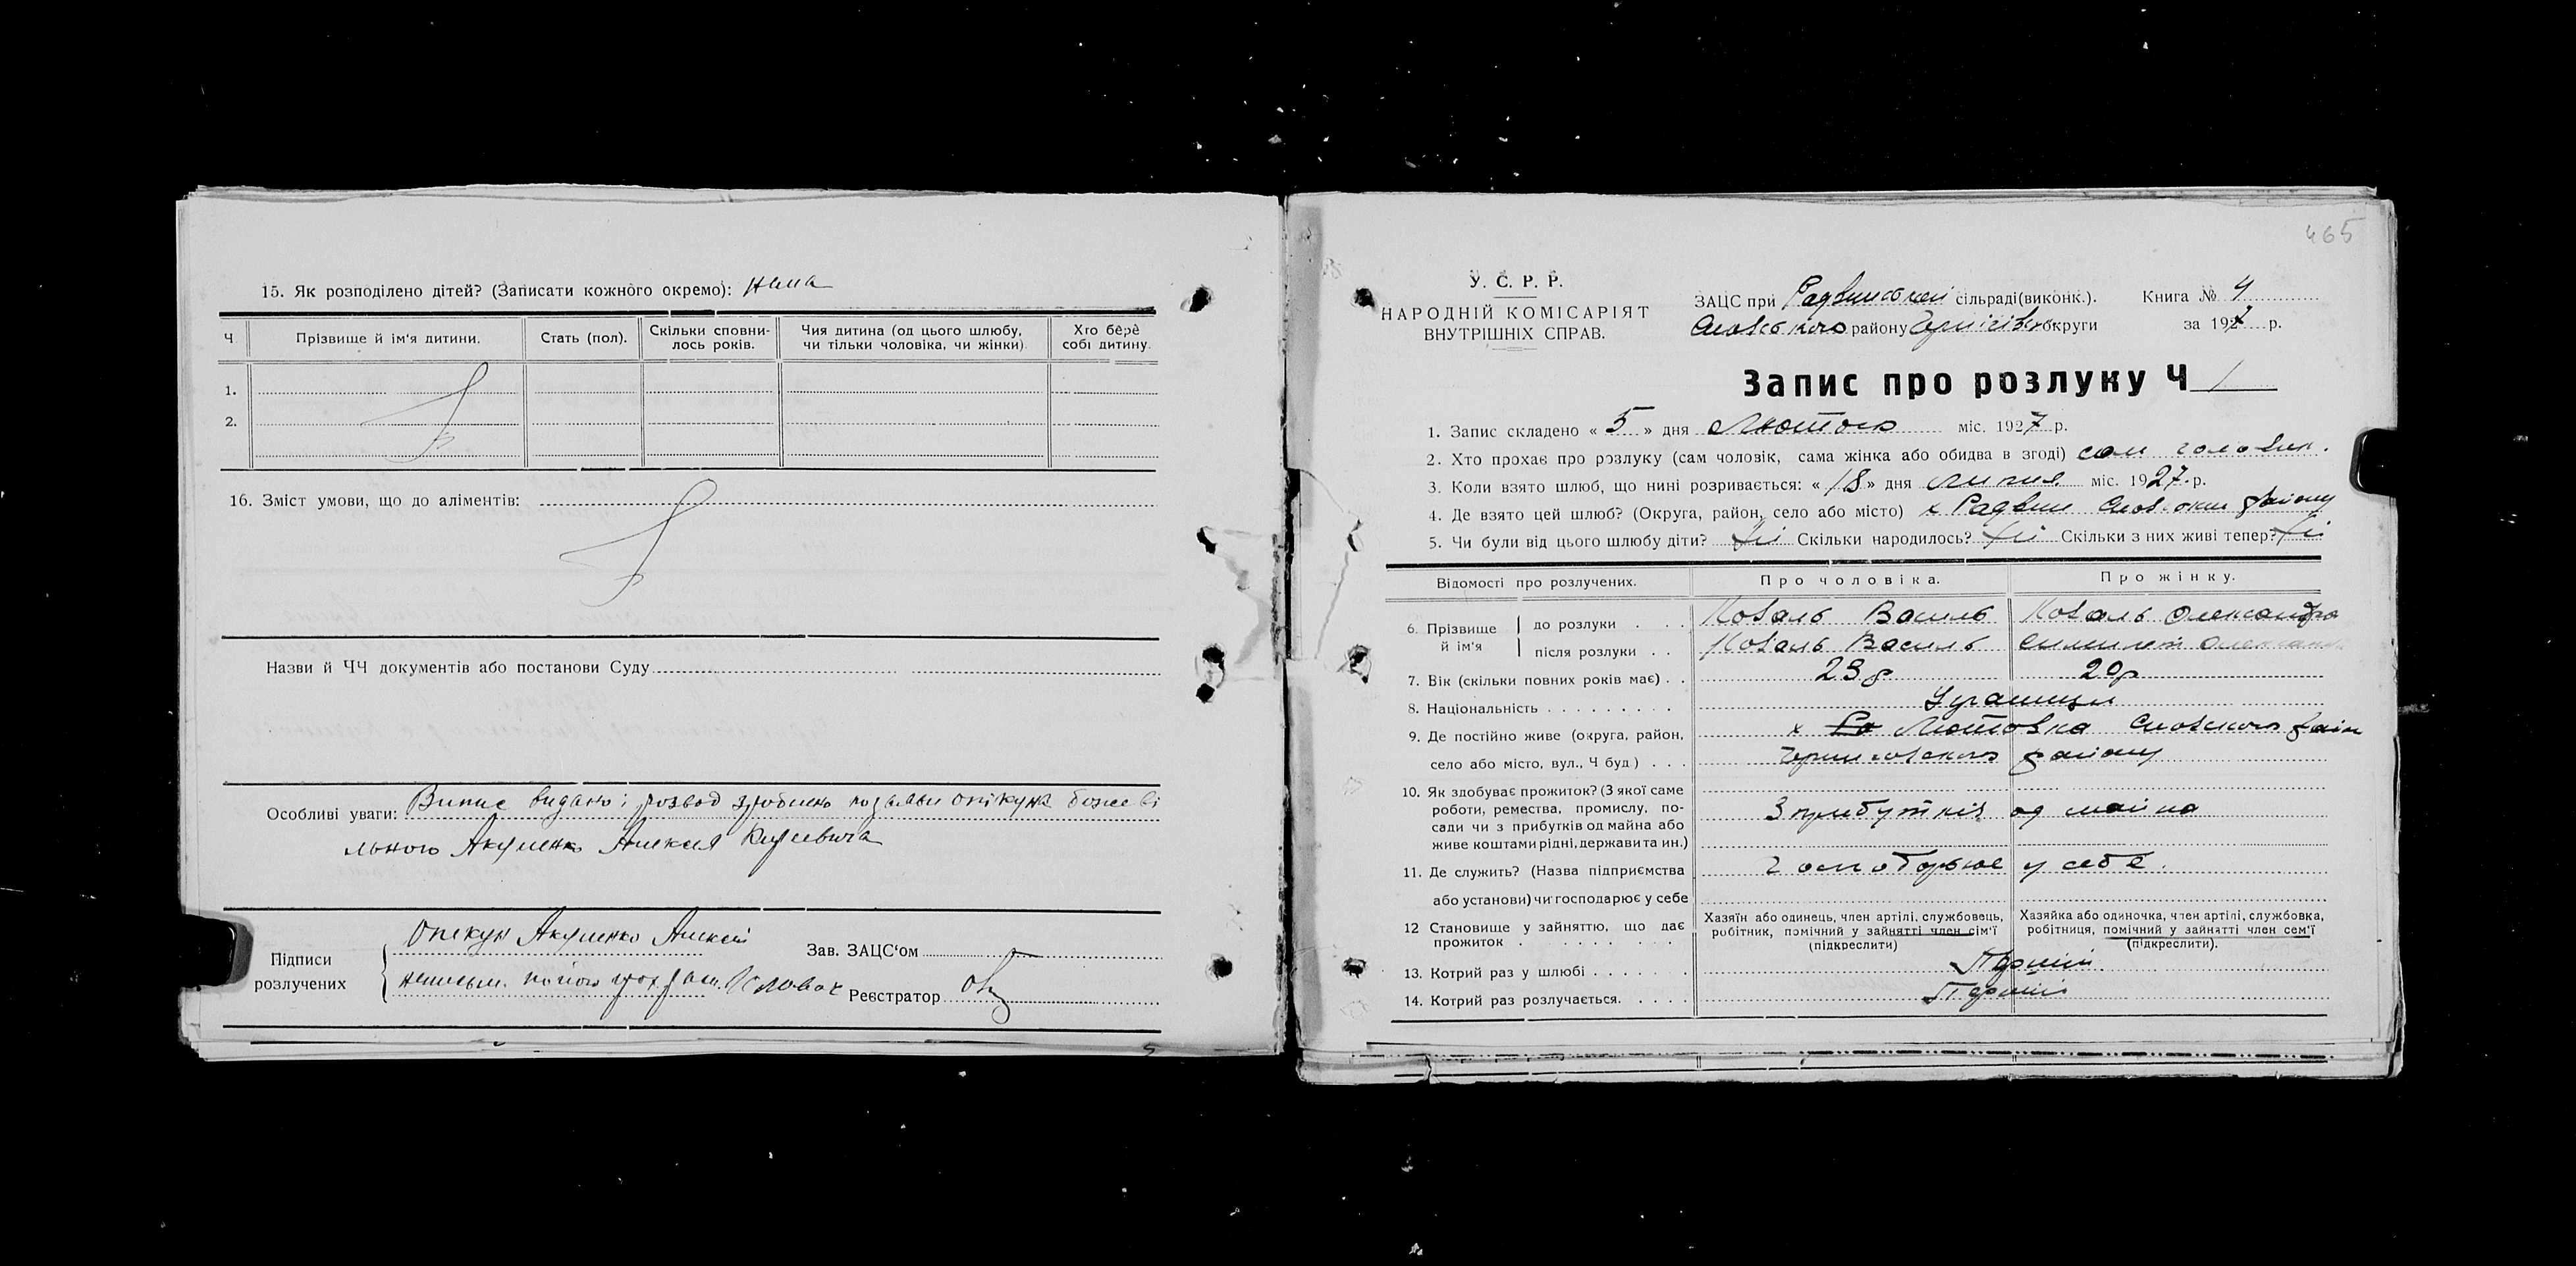 15. Як розподілено дітей? (Записати кожного окремо): нема
Ч | Прізвище й ім'я дитини. | Стать (пол). | Скільки сповни-лось років. | Чия дитина (од цього шлюбу, чи тільки чоловіка, чи жінки) | Хто бере собі дитину.
1.
2.
16. Зміст умови, що до аліментів:
Назви й ЧЧ документів або постанови Суду
Особливі уваги: Випис видано; розвод зроблено по заяви опікуна божеві
льного Акуленко Алексея
Підписи розлучених
Опекун Акуленко Алексей
Зав. ЗАЦС'ом
Реєстратор
465
У. С. Р. Р.
НАРОДНІЙ КОМІСАРІЯТ
ВНУТРІШНІХ СПРАВ.
ЗАЦС при сільраді(виконк.). Книга № 4
району округи за 1927 р.
Запис про розлуку Ч 1
1. Запис складено « 5 » дня Лютого міс. 1927 р.
2. Хто прохає про розлуку (сам чоловік, сама жінка або обидва в згоді) сам чоловик.
3. Коли взято шлюб, що нині розривається: « 18 » дня липня міс. 1927 р.
4. Де взято цей шлюб? (Округа, район, село або місто) х району
5. Чи були від цього шлюбу діти? Ні Скільки народилось? Ні Скільки з них живі тепер? Ні
Відомості про розлучених. | Про чоловіка. | Про жінку.
6. Прізвище й ім'я | до розлуки . . . Коваль Василь | Коваль Олександра
після розлуки . . Коваль Василь | Олександ
7. Вік (скільки повних років має) . . 23 р | 20 р
8. Національність . . . . . . . . . Українци
9. Де постійно живе (округа, район, х Лютовка
село або місто, вул., Ч буд.) . . . району
10. Як здобуває прожиток? (З якої саме
роботи, ремества, промислу, по-
сади чи з прибутків од майна або З прибутків од майна
живе коштами рідні, держави та ин.)
11. Де служить? (Назва підприємства Господорює у себе.
або установи) чи господарює у себе
12 Становище у зайняттю, що дає прожиток . . . . . . . . | Хазяїн або одинець, член артілі, службовець, робітник, помічний у зайнятті член сім'ї (підкреслити) | Хазяйка або одиночка, член артілі, службовка, робітниця, помічний у зайнатті член сем'ї (підкреслити).
13. Котрий раз у шлюбі . . . . . . . Перший
14. Котрий раз розлучається. . . . . Перший